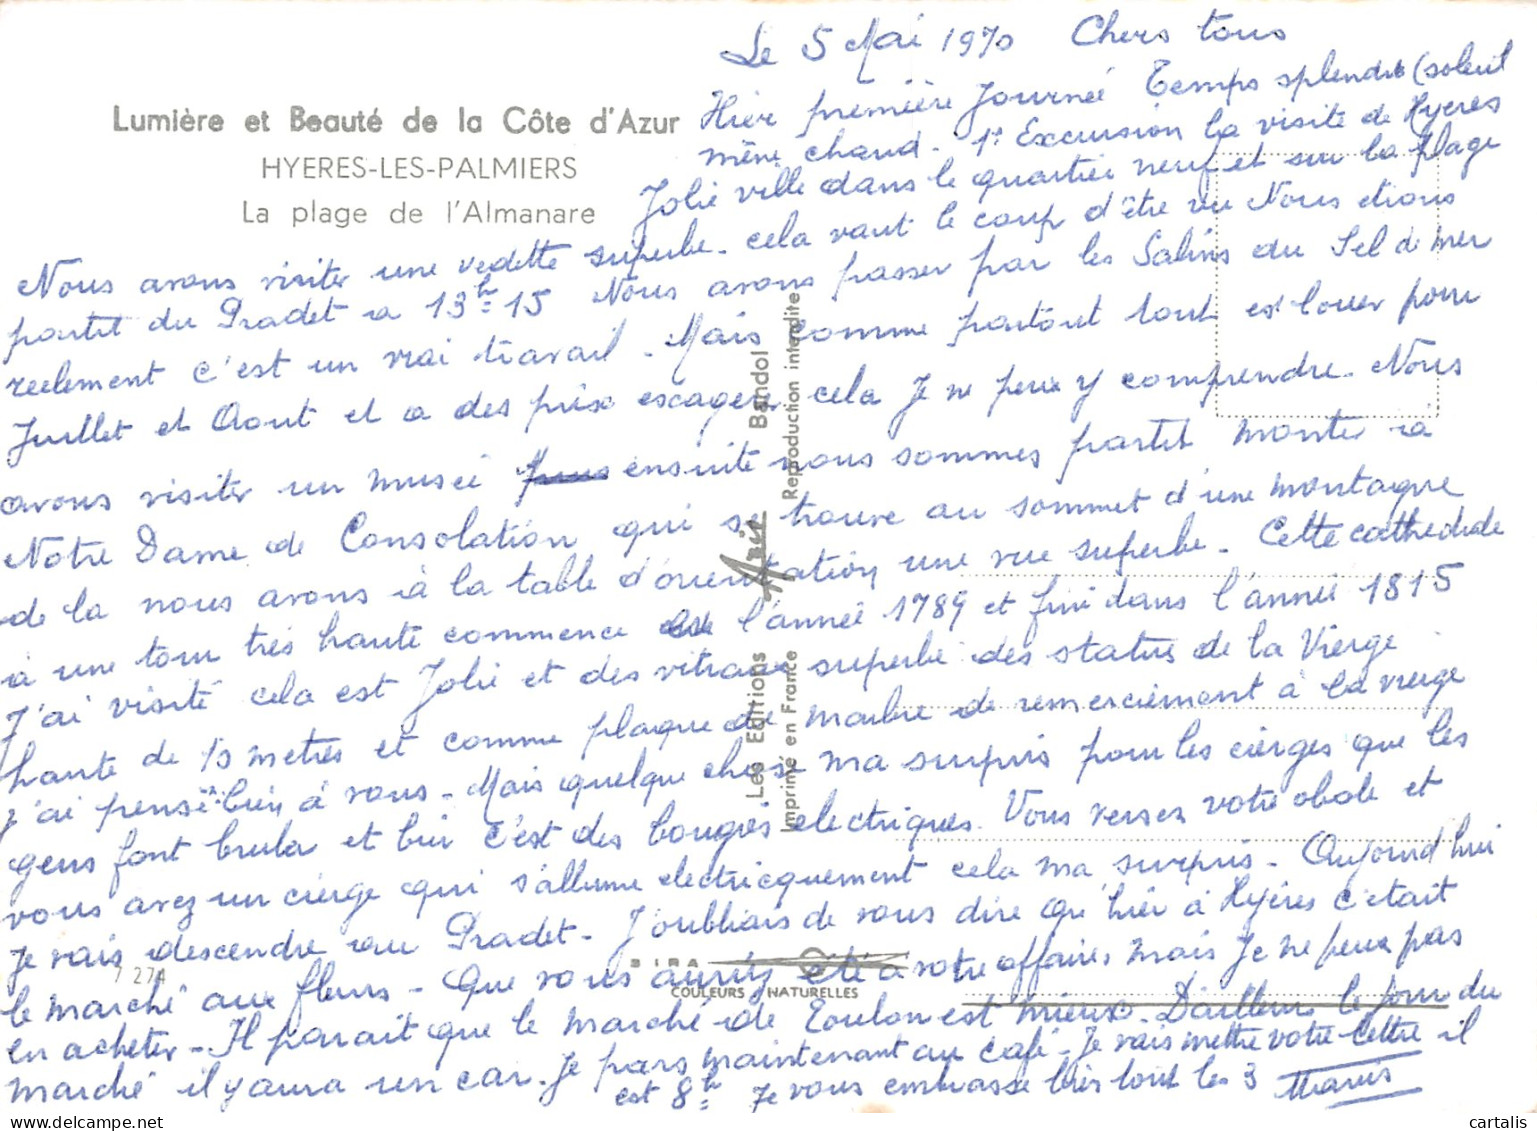 Le 5 Mai 1970 Chers tous
Lumière et Beauté de la Côte d'Azur
HYERES-LES-PALMIERS
La plage de l'Almanare
Hier première Journée Temps splendide (soleil
même chaud - 1e Excursion la visite de Hyeres
Jolie ville dans le quartier neuf et sur la plage
Nous avons visiter une vedette superbe - cela vaut le coup d'être vu Nous etions
partit du Pradet a 13h 15 Nous avons passer par les Salins du Sel de mer
reelement c'est un vrai travail - Mais comme partout tout est louer pour
Juillet et Aout et a des prix exagerer cela Je ne peux y comprendre - Nous
avons visiter un musée ensuite nous sommes partit monter à
Notre Dame de Consolation qui se trouve au sommet d'une montagne
de la nous avons à la table d'orientation une vue superbe - Cette cathedrale
à une tour très haute commence l'année 1789 et fini dans l'année 1815
J'ai visité cela est Jolie et des vitraux superbe des status de la Vierge
haute de 13 metres et comme plaque de marbre de remerciement à la vierge
j'ai pensé bien à vous - Mais quelque chose ma surpris pour les cierges que les
gens font bruler et bien c'est des bougies electriques. Vous versez votre obole et
vous avez un cierge qui s'allume electricquement cela ma surpris - Aujourd'hui
Je vais descendre au Pradet - J'oubliais de vous dire qu'hier à Hyéres c'etait
le marché aux fleurs - Que vous auriez été a votre affaires mais Je ne peux pas
en acheter - Il parait que le marché de Toulon est mieux - D'ailleurs le jour du
marché il y aura un car. Je pars maintenant au café - Je vais mettre votre lettre il
est 8h Je vous embrasse bien tout les 3
Les Editions Azir Bandol
Imprimé en France Reproduction interdite
7 274
SIRA
COULEURS NATURELLES
cartalis